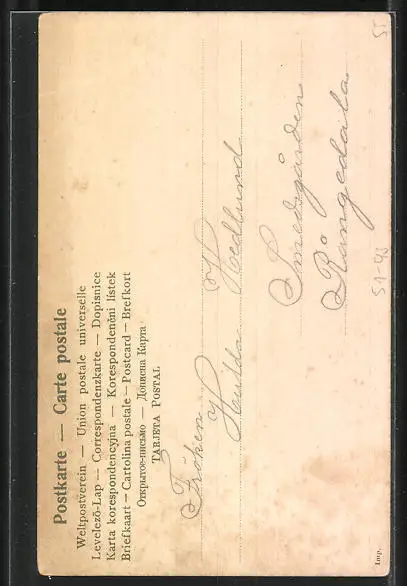 Postkarte — Carte postale
Weltpostverein — Union postale universelle
Levelező-Lap — Correspondenzkarte — Dopisnice
Karta korespondencyjna — Korespondenční lístek
Briefkaart — Cartolina postale — Postcard — Brefkort
Открытое письмо — Дописна Карта
TARJETA POSTAL
Fröken
Hulda Hedlund
Smedsgården
Rångedala
Imp.